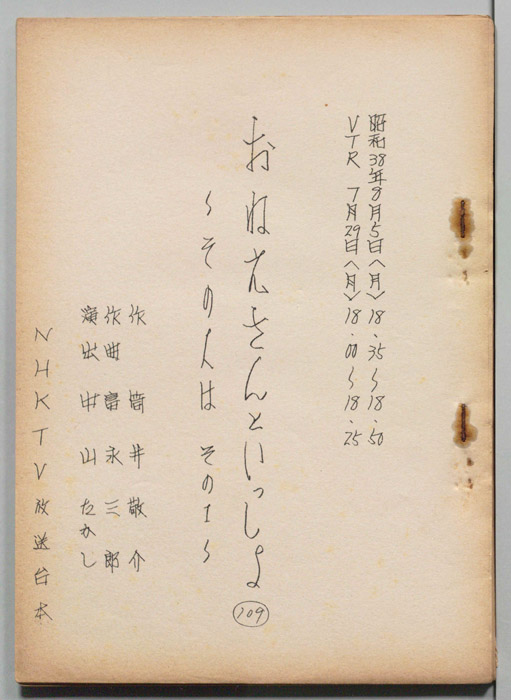 昭和38年8月5日〈月〉18.35〜18.50
VTR 7月29日〈月〉18.00〜18.25
おねえさんといっしょ 109
〜その人は その1〜
作 筒井敬介
作曲 富永三郎
演出 中山たかし
NHKTV放送台本